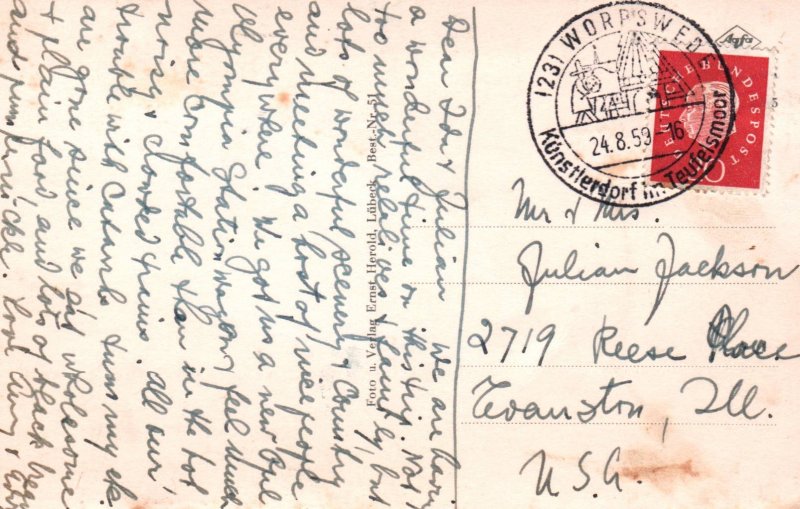 Dear Ida & Julian We are having
a wonderful time on this trip. Not
too much relatives & family, but
lots of wonderful scenery & Country
and meeting a host of nice people
every where. We got us a new Opel
Olympia Station wagon & feel much
more Comfortable than in the hot
noisy & clowded trains. All our
trouble with Catarrh turn my etc.
are gone since we eat wholesome
& plain food, and lots of black bread
and pumpernickle. Love
Foto u. Verlag Ernst Herold, Lübeck Best.-Nr. 51
Agfa
(23) WORPSWEDE
24.8.59-16
Künstlerdorf im Teufelsmoor
DEUTSCHE BUNDESPOST
Mr & Mrs.
Julian Jackson
2719 Reese Place
Evanston, Ill.
U.S.A.